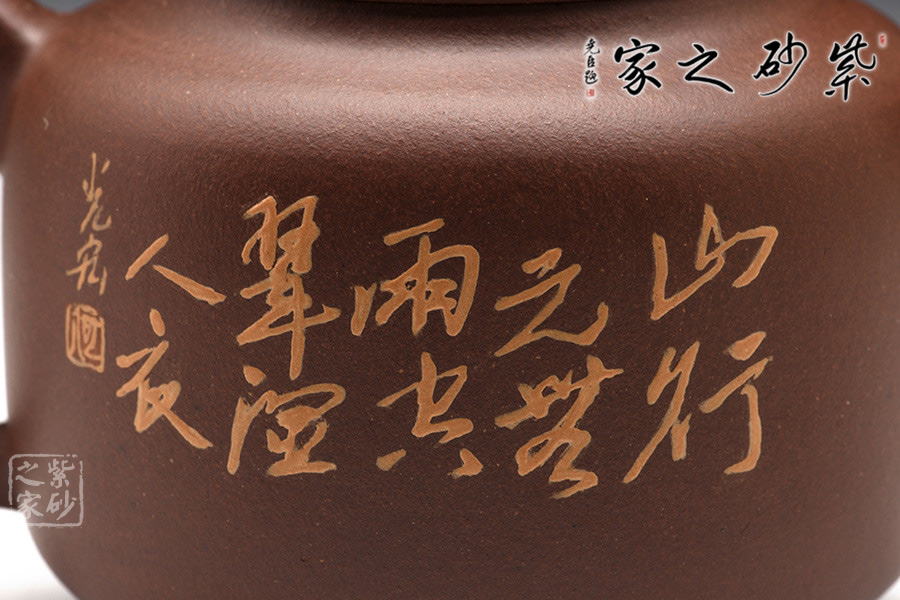 紫砂之家
尧臣題
山行
元無
雨空
翠湿
人衣
光宏
紫砂
之家